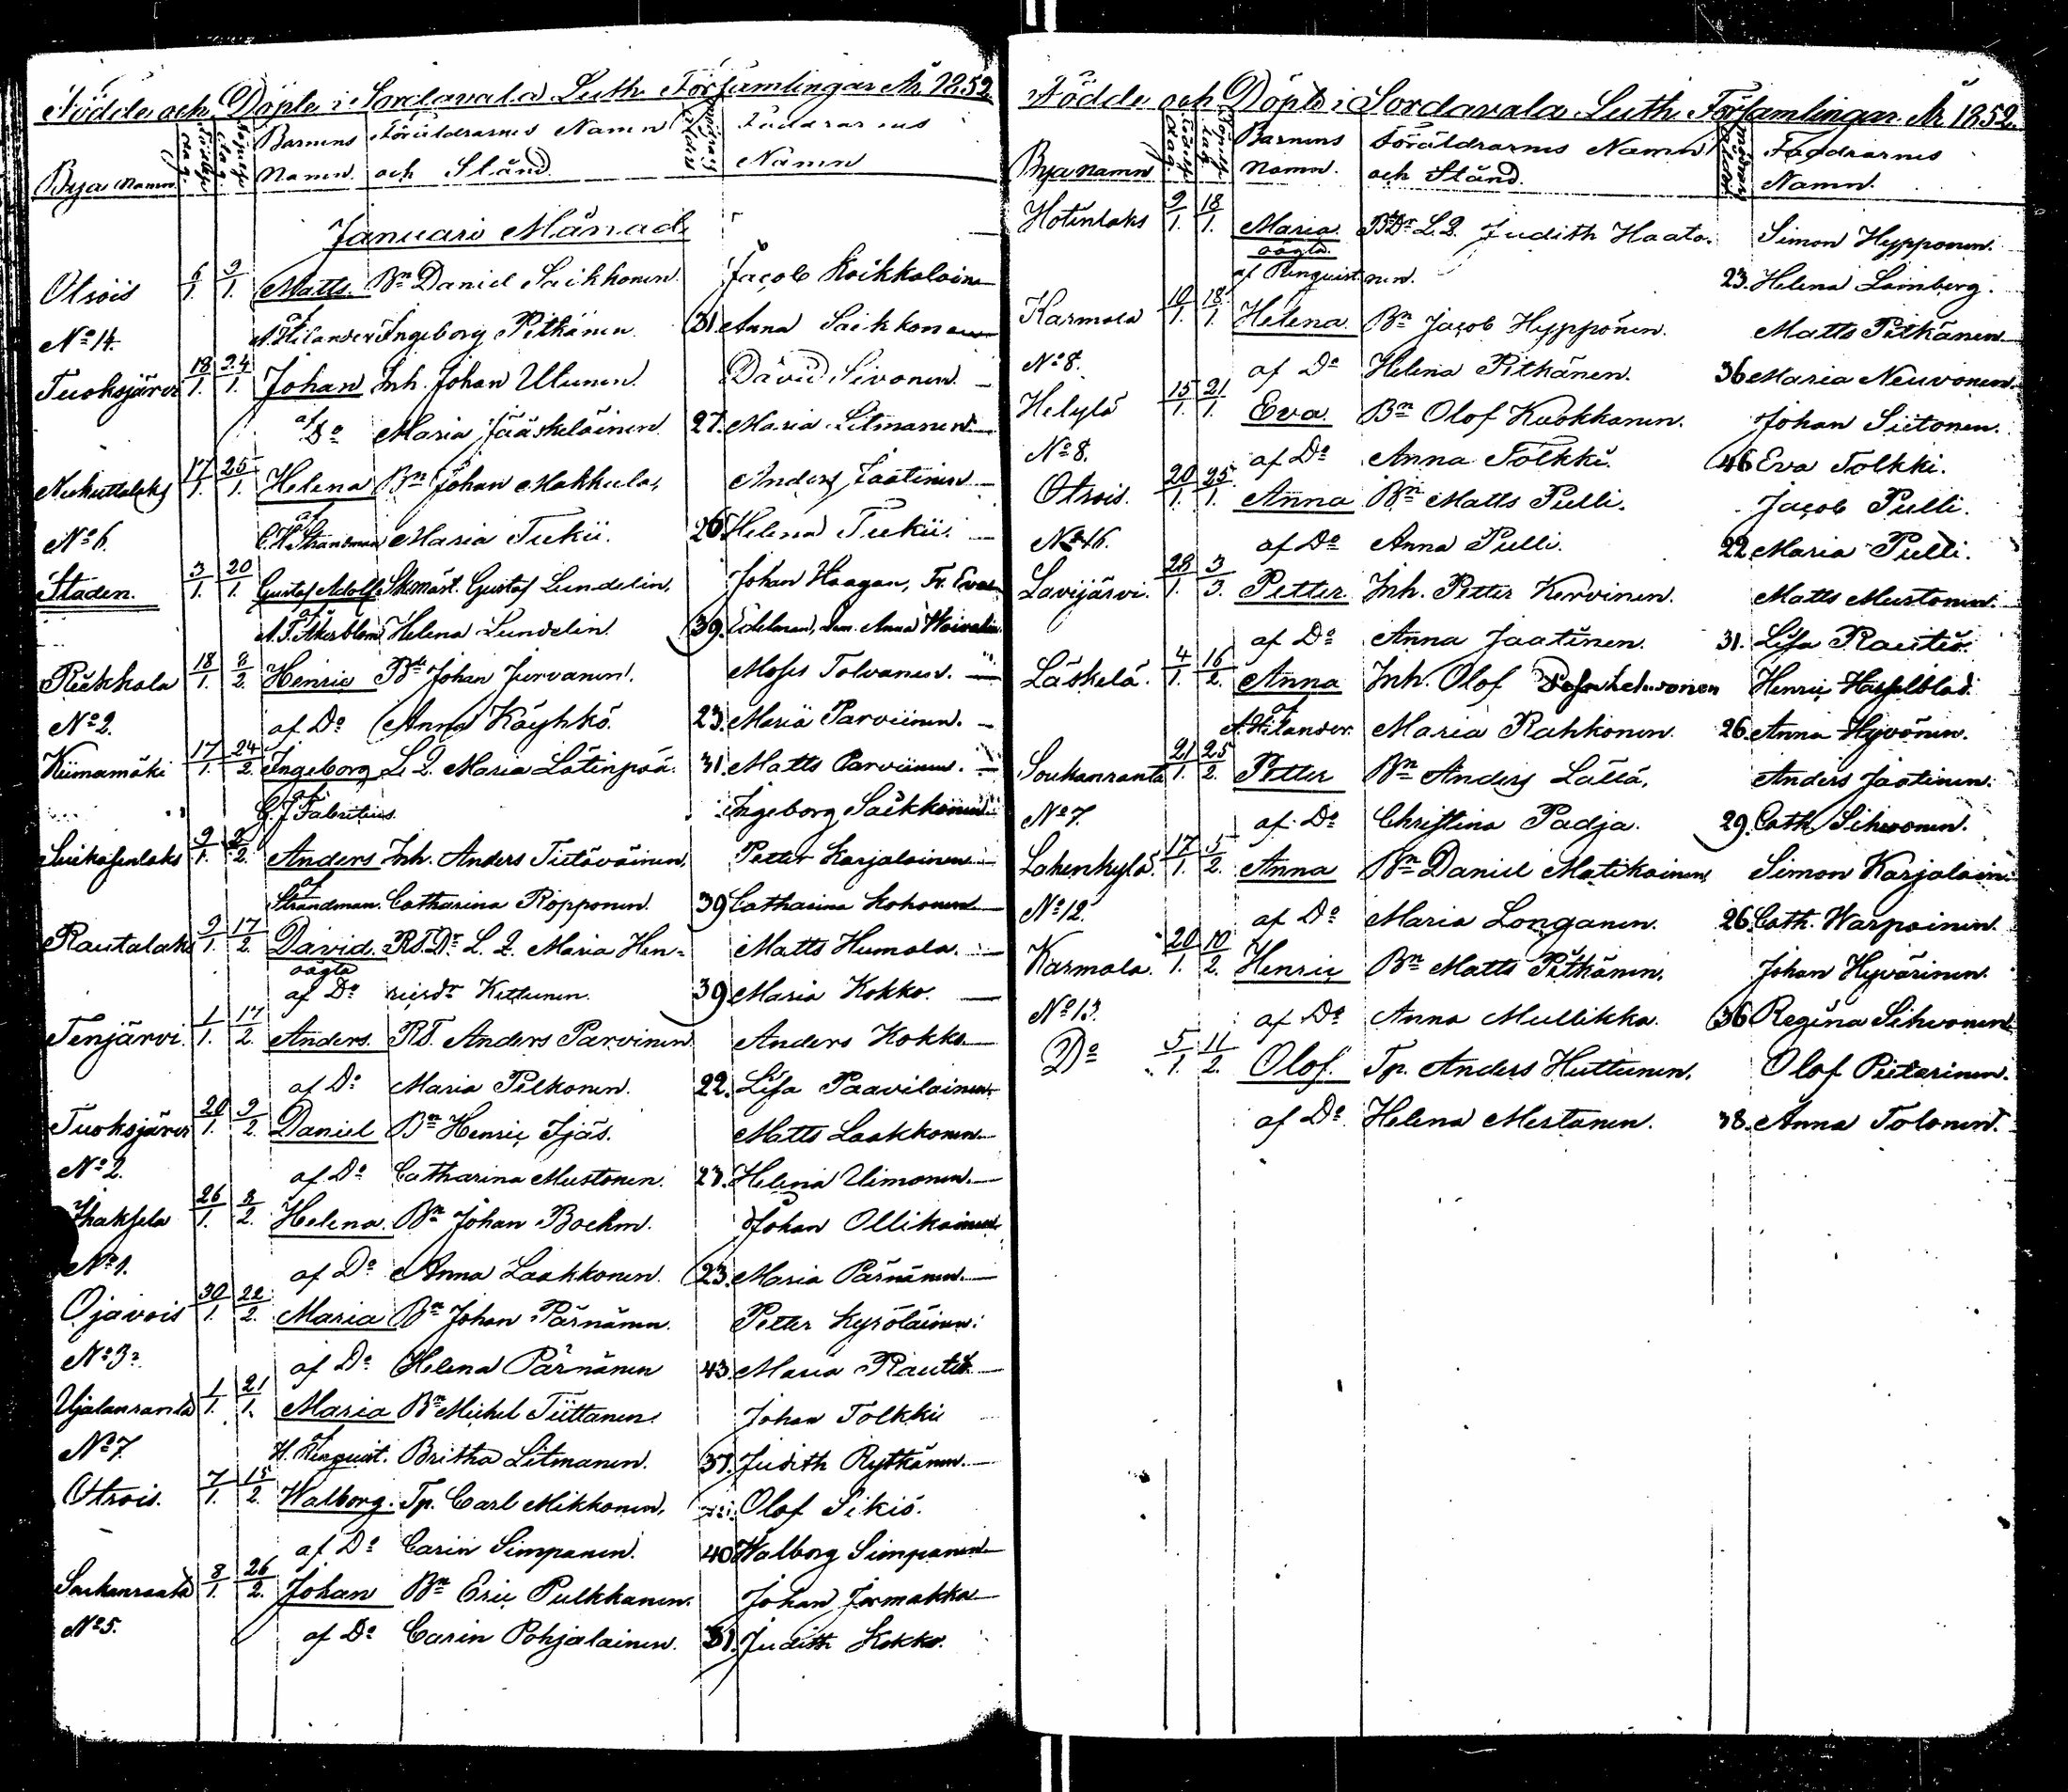 Födde och Döpte i Sordavala Luth. Församlingar År 1852.
Bya Namn. Födelse dag. Döpelse dag. Barnens Namn. Föräldrarnes Namn och Stånd. Moders ålder Faddrarnes Namn
Januari Månad
Otsois 6/1. 9/1. Matts. Bn Daniel Saikkonen. Jacob Koikkalain
No 14. af A. Hilander Ingeborg Pitkänen 31. Anna Saikkonen
Tuoksjärvi 18/1. 24/1. Johan Inh. Johan Ulunen. David Sivonen.
af Do Maria Jääskeläinen. 27. Maria Litmanen.
17/1. 25/1. Helena Bn Johan Makkula, Anders Jaatinen
No 6. af C. H. Strandman Maria Tukii. 26 Helena Tukii.
Staden. 3/1. 20/1. Gustaf Adolf Skomäst. Gustaf Lundelin, Johan Haagan, Fr. Eva
af A. F. Akerblom Helena Lundelin. 39. Edelman, Dem. Anna
Riekkala 18/1. 8/2. Henric Bn Johan Jurvanen. Moses Tolvanen.
No 2. af Do Anna Käyhkö. 23. Maria Parviinen.
Kiinamäki 17/1. 24/2. Ingeborg L. Q. Maria Lätinpää. 31. Matts Parviinen.
af C. J. Fabritius. Ingeborg Saikkonen
9/1. /2. Anders Inh. Anders Tiitäväinen, Petter Karjalainen
af Strandman. Catharina Röpponen. 39 Catharina Kohonen
Rautalaks 9/1. 17/2. David. RT. Dr. L. Q. Maria Hen- Matts Humala.
oägta af Do ricsdr Kettunen. 39 Maria Kokko.
Tenjärvi. 1/1. 17/2. Anders. RT. Anders Parvinen Anders Kokko
af Do Maria Pelkonen. 22. Lisa Paavilainen
Tuoksjärvi 20/1. 9/2. Daniel Bn Henric Ijäs. Matts Laakkonen
No 2. af Do Catharina Mustonen. 27. Helena Uimonen.
Ihaksela 26/1. 8/2. Helena. Bn Johan Boehm. Johan Ollikainen
No 1. af Do Anna Laakkonen. 23. Maria Pärnänen.
Ojavois 30/1. 22/2. Maria Bn Johan Pärnänen. Petter Kyröläinen.
No 3. af Do Helena Pärnänen 43. Maria Rautio
Ujalanranta 1/1. 21/1. Maria Bn Michel Tiittanen. Johan Tolkki
No 7. af H. Renquist. Britha Litmanen. 37. Judith Rytkänen.
Otsois. 7/1. 15/2. Walborg. Tp. Carl Mikkonen, Olof Sikiö.
af Do Carin Simpanen. 40 Walborg Simpanen
Soukanranta 8/1. 26/2. Johan Bn Eric Pulkkanen. Johan Jormakka
No 5. af Do Carin Pohjalainen. 31. Judith Kokko.
Födde och Döpte i Sordavala Luth. Församlingar År 1852.
Bya namn Födelse dag. Döpelse dag Barnens Namn. Föräldrarnes Namn och Stånd. Moders ålder Faddrarnes Namn.
Hotinlaks 9/1. 18/1. Maria. BDr L. Q. Judith Haata. Simon Hypponen.
oägta af Renquist nen. 23. Helena Lamberg.
Karmala 10/1. 18/1. Helena. Bn Jacob Hyppönen. Matts Pitkänen.
No 8. af Do Helena Pitkänen. 36 Maria Neuvonen.
Helylä 15/1. 21/1. Eva. Bn Olof Kuokkanen. Johan Siitonen.
No 8. af Do Anna Tolkki. 46 Eva Tolkki.
Otsois. 20/1. 25/1. Anna Bn Matts Pulli. Jacob Pulli.
No 16. af Do Anna Pulli. 22 Maria Pulli.
Lavijärvi. 28/1. 3/3. Petter. Inh. Petter Kervinen. Matts Mustonen.
af Do Anna Jaatinen. 31. Lisa Rautio.
Läskelä. 4/1. 16/2. Anna Inh. Olof Henric Hasselblad.
af A. Hilander. Maria Rahkonen. 26. Anna Hyvönen.
Soukanranta 21/1. 25/2. Petter Bn Anders Lällä, Anders Jaatinen.
No 7. af Do Christina Padja. 29. Cath. Sihvonen.
Lahenkylä. 17/1. 5/2. Anna Bn Daniel Matikainen, Simon Karjalain
No 12. af Do Maria Longanen. 26 Cath. Warpainen.
Karmala. 20/1. 10/2. Henric Bn Matts Pitkänen, Johan Hyvärinen.
No 13. af Do Anna Mullikka. 36 Regina Sihvonen
Do 5/1. 11/2. Olof. Tp. Anders Huttunen. Olof Pietarinen.
af Do. Helena Mertanen. 38. Anna Tolonen.